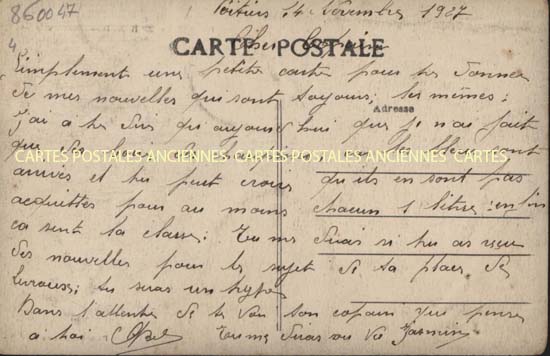 860047
Poitiers 14 Novembre 1927
4
CARTE POSTALE
Cher Copain
Simplement une petite carte pour te donner
Adresse
de mes nouvelles qui sont toujours les mêmes :
j'ai à te dire qu'aujourd'hui que je n'ai fait
que des
CARTES POSTALES ANCIENNES CARTES POSTALES ANCIENNES CARTES
arrivés et tu peut croire qu'ils en sont pas
quittes pour au moins chacun 1 litre : enfin
ça sent la classe : Tu me diras si tu as reçu
des nouvelles pour le sujet de ta place de
tu
Dans l'attente de te voir ton copain qui pense
à toi Abel Tu me diras ou va Jasmin